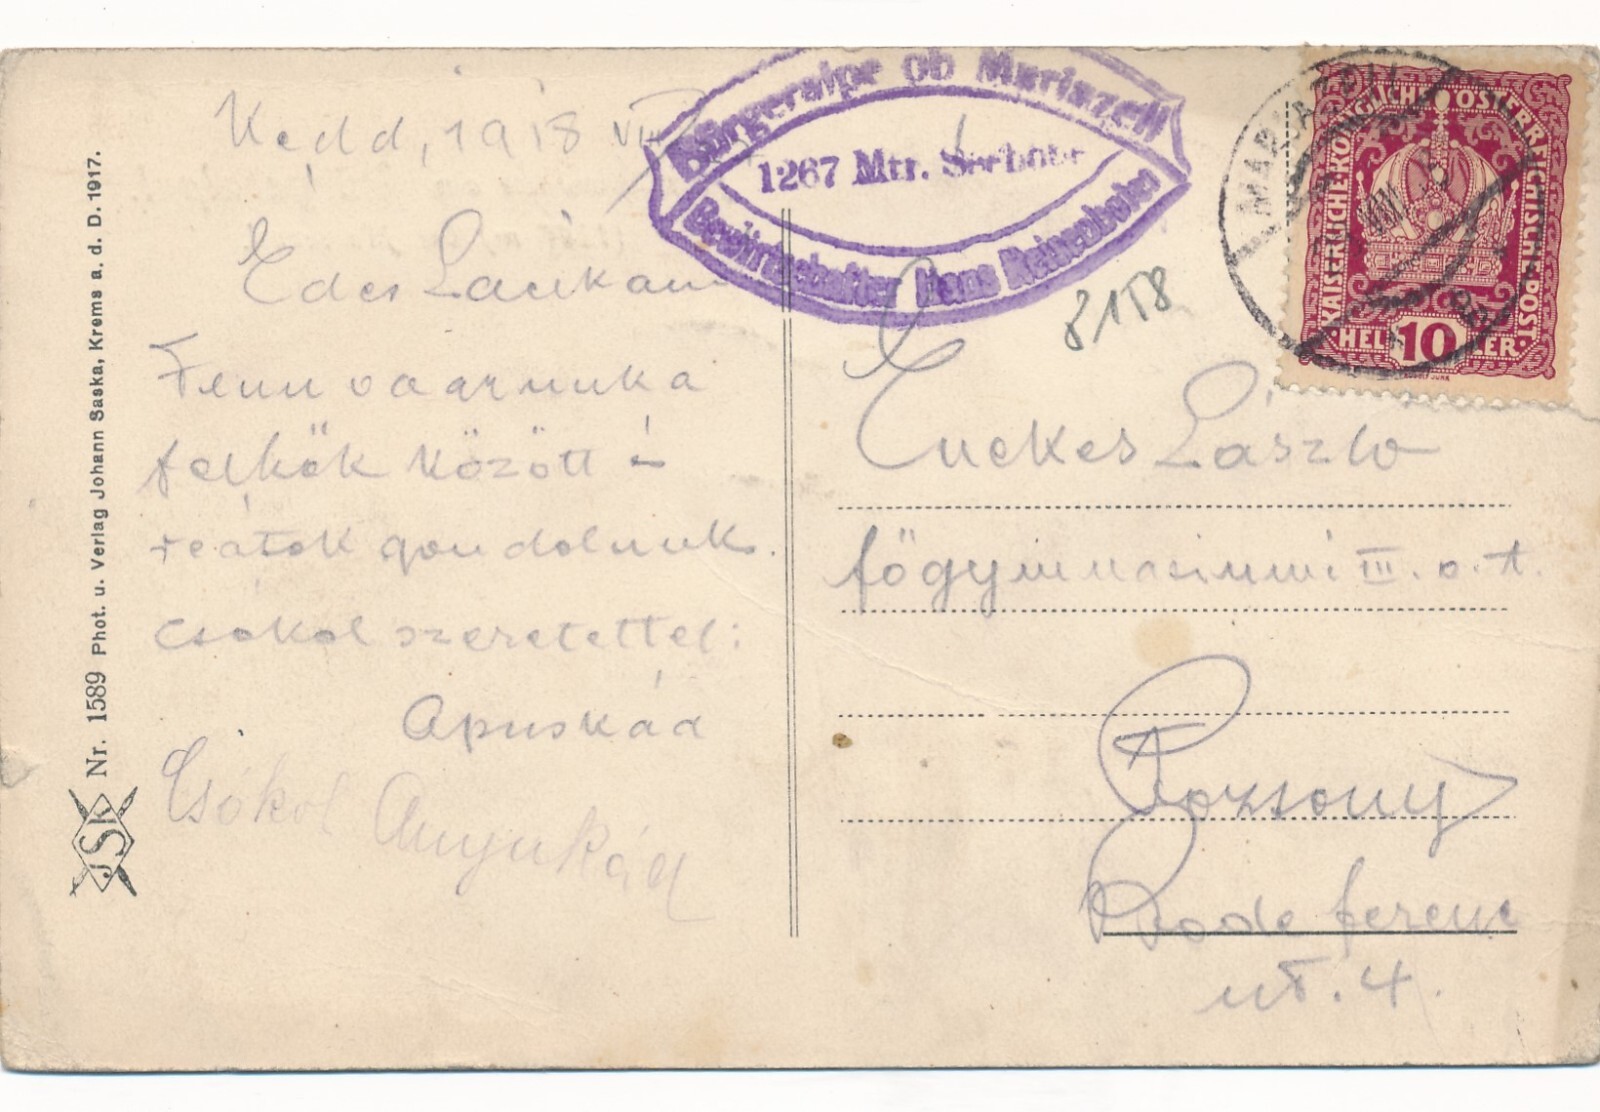 Kedd, 1918 VIII
Edes Laczkam
Fenn vaarnuka
felhők között s
reátok gondolunk.
Csókol szeretettel:
Apuskád
Csókol Anyukád
Bürgeralpe ob Mariazell
1267 Mtr. Seehöhe
Bewirtschafter Hans
8158
MARIAZELL
KAISERLICHE KÖNIGLICHE ÖSTERREICHISCHE POST
HELLER 10
László
főgymnasiumi III. o. t.
Pozsony
Ferenc
ut. 4.
Nr. 1589 Phot. u. Verlag Johann Saska, Krems a. d. D. 1917.
JSK